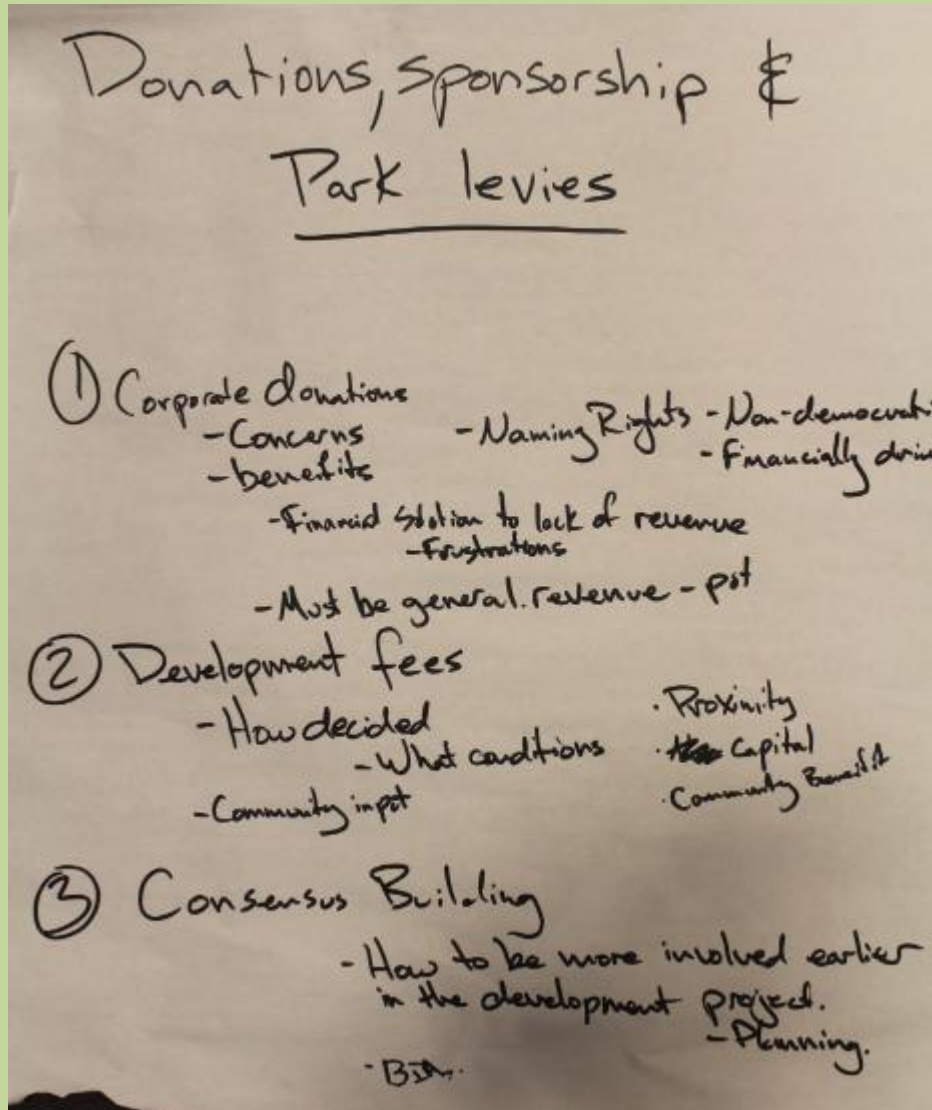 Donations, sponsorship &
Park levies
① Corporate donations
- Concerns - Naming Rights - Non-democrati
- benefits - Financially driv
- Financial to lack of revenue
- Frustrations
- Must be general revenue - pot
② Development fees
- How decided · Proximity
- What conditions · Capital
- Community input · Community Benefit
③ Consensus Building
- How to be more involved earlier
in the development project.
- Planning.